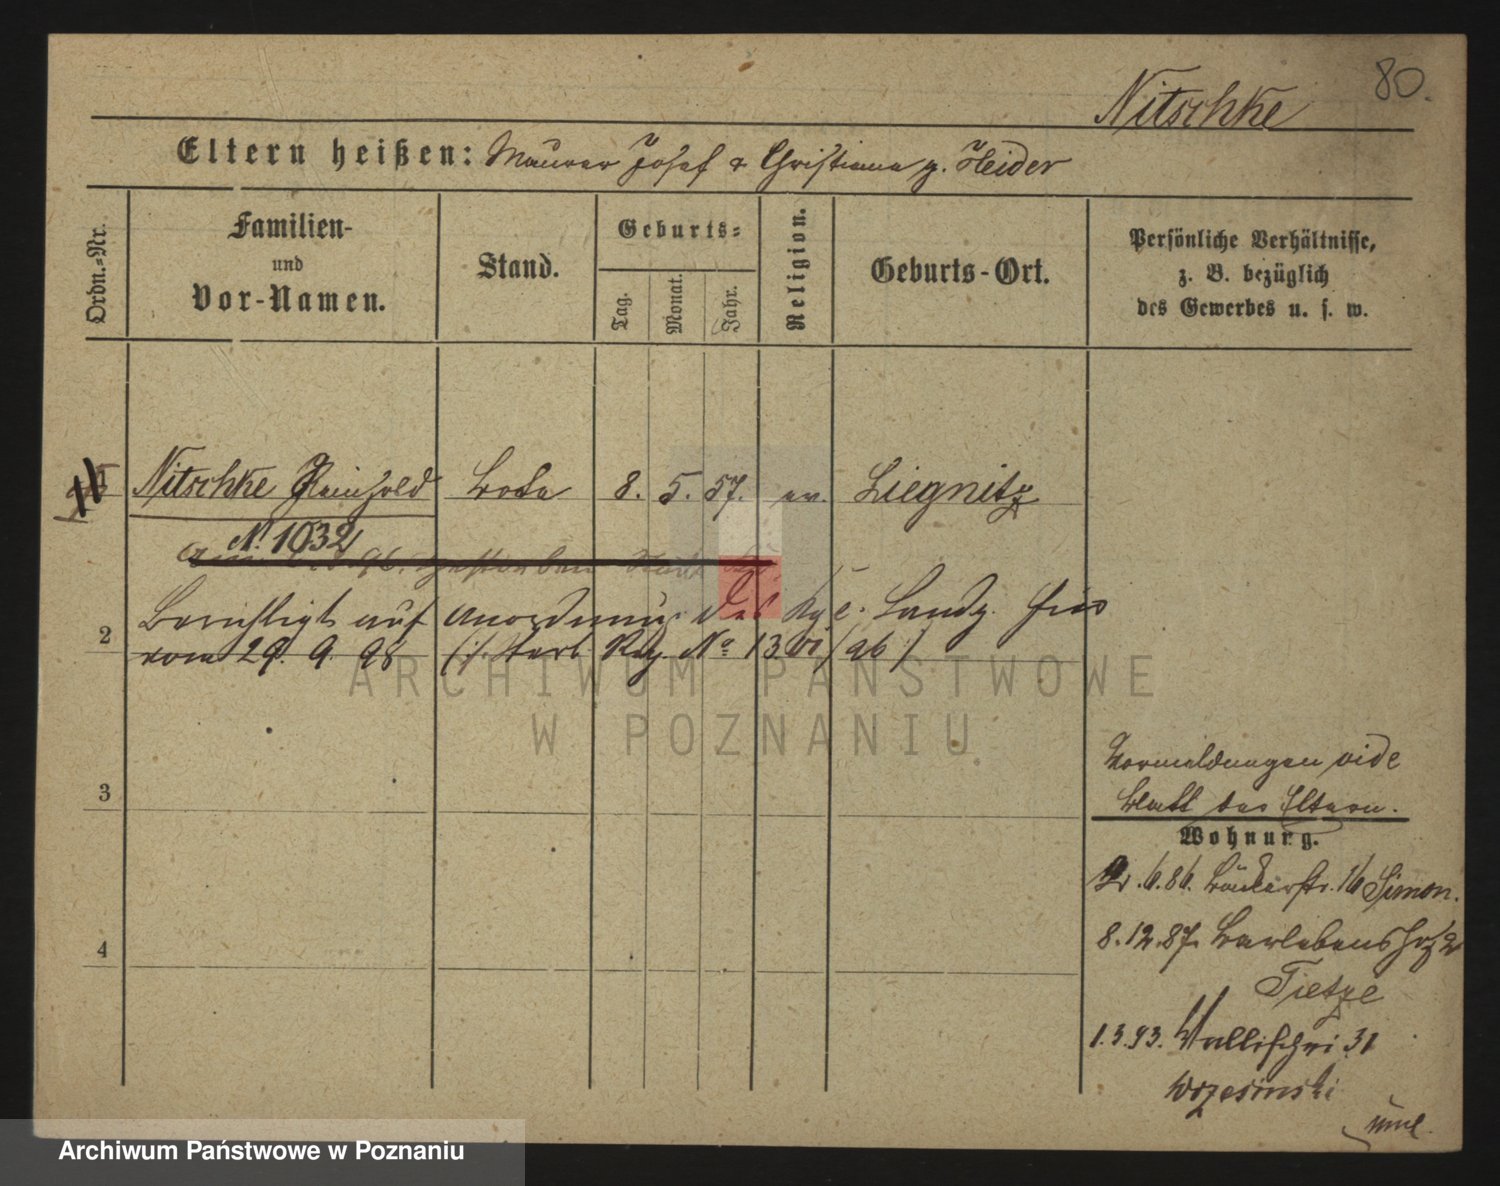 80.
Nitschke
Eltern heißen: Maurer Josef & Christiane g. Heider
Ordn.-Nr.
Familien-
und
Vor-Namen.
Stand.
Geburts-
Tag.
Monat.
Jahr.
Religion.
Geburts-Ort.
Persönliche Verhältnisse,
z. B. bezüglich
des Gewerbes u. s. w.
Nitschke Reinhold Bote 8. 5. 57. ev. Liegnitz
N. 1032
Berichtigt auf Anordnung des Kgl. Landg. hies
2 vom 29. 9. 98 (Sterb. Reg. No
ARCHIWUM PAŃSTWOWE
W POZNANIU
3
Vormeldungen vide
Blatt der Eltern.
Wohnung.
.6.86. Bäckerstr. 16 Simon.
4
8.12.87. Barlebenshof 2
Tietze
1.3.93. Wallischei 31
Wrzesinski
Archiwum Państwowe w Poznaniu